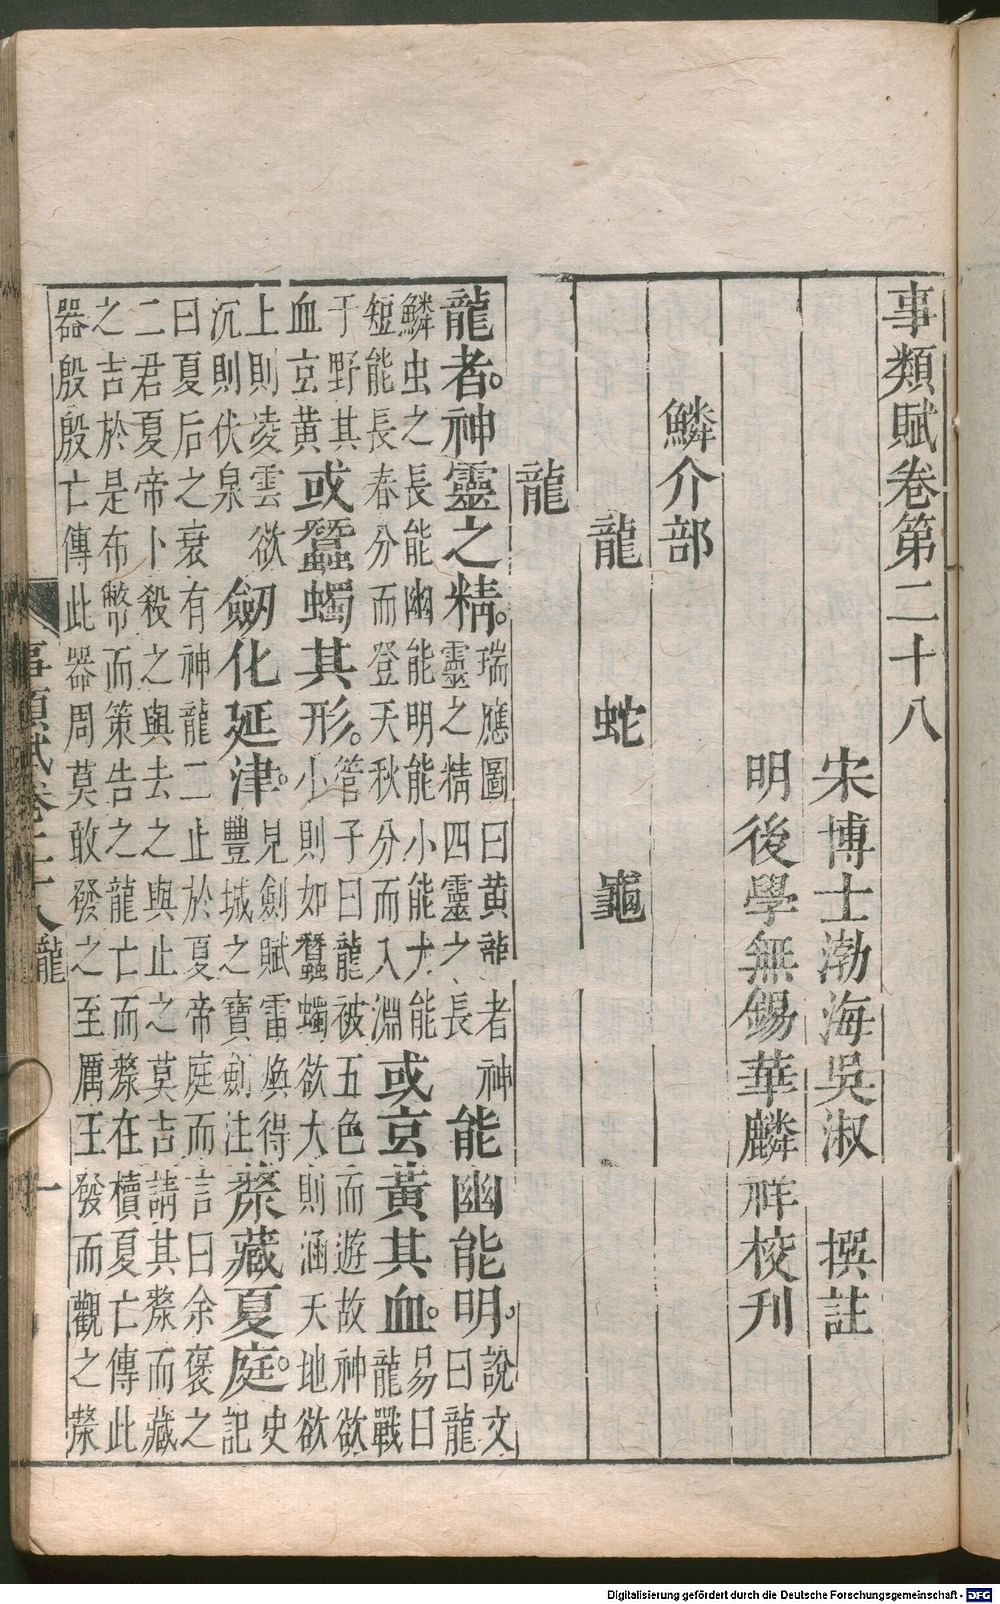 事類賦卷第二十八
宋博士渤海吳淑 撰註
明後學無錫華麟祥校刊
鱗介部
龍 蛇 龜
龍
龍者。神靈之精。瑞應圖曰黃龍者神靈之精四靈之長能幽能明。說文曰龍
鱗虫之長能幽能明能小能大能短能長春分而登天秋分而入淵或玄黃其血。易曰龍戰
于野其血玄黃或蠶蠋其形。管子曰龍被五色而遊故神欲小則如蠶蠋欲大則涵天地欲
上則凌雲欲沉則伏泉劒化延津。見劍賦雷煥得豐城之寶劍注漦藏夏庭。史記
曰夏后之衰有神龍二止於夏帝庭而言曰余褒之二君夏帝卜殺之與去之與止之莫吉請其漦而藏
之吉於是布幣而策告之龍亡而漦在櫝夏亡傳此器殷殷亡傳此器周莫敢發之至厲王發而觀之漦
事類賦卷二十八 龍 一
Digitalisierung gefördert durch die Deutsche Forschungsgemeinschaft - DFG